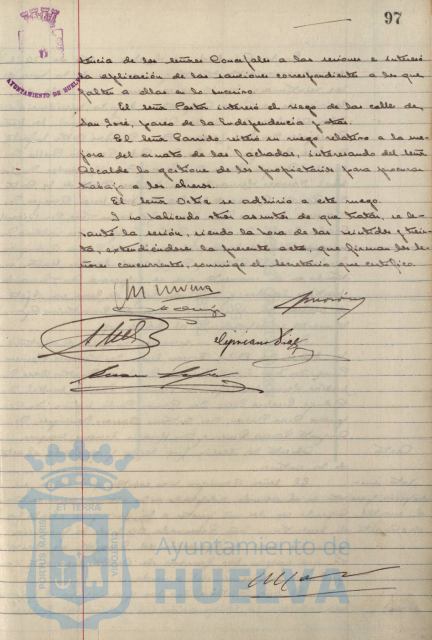 97
AYUNTAMIENTO DE HUELVA
tencia de los señores Concejales a las sesiones e interesó
la aplicación de las sanciones correspondiente a los que
falten a ellas en lo sucesivo.
El señor Pastor interesó el riego de las calles de
San José, paseo de la Independencia y otras.
El señor Garrido reiteró su ruego relativo a la me-
jora del ornato de las fachadas, interesando del señor
Alcalde lo gestione de los propietarios para procurar
trabajo a los obreros.
El señor Ortiz se adhirió a este ruego.
Y no habiendo otros asuntos de que tratar, se le-
vantó la sesión, siendo la hora de las veintidós y trein-
ta, extendiéndose la presente acta, que firman los se-
ñores concurrentes, conmigo el Secretario que certifico.
Cipriano Diaz
PORTUS MARIS ET TERRÆ CUSTODIA
Ayuntamiento de
HUELVA